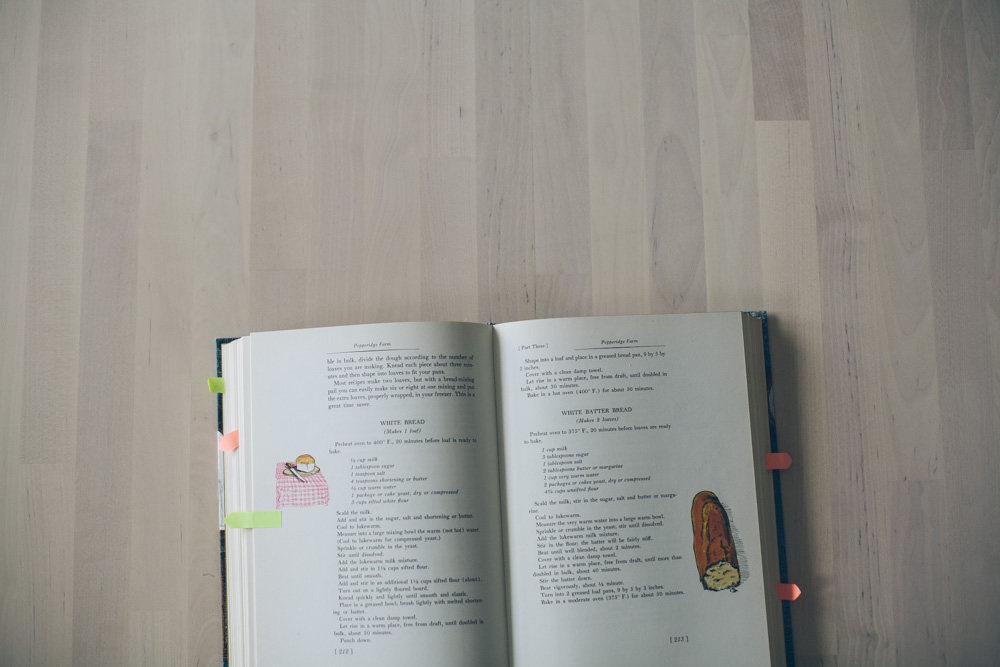 Pepperidge Farm
ble in bulk, divide the dough according to the number of
loaves you are making. Knead each piece about three min-
utes and then shape into loaves to fit your pans.
Most recipes make two loaves, but with a bread-mixing
pail you can easily make six or eight at one mixing and put
the extra loaves, properly wrapped, in your freezer. This is a
great time saver.
WHITE BREAD
(Makes 1 loaf)
Preheat oven to 400° F., 20 minutes before loaf is ready to
bake.
cup milk
1 tablespoon sugar
1 teaspoon salt
4 teaspoons shortening or butter
cup warm water
1 package or cake yeast, dry or compressed
3 cups sifted white flour
Scald the milk.
Add and stir in the sugar, salt and shortening or butter.
Cool to lukewarm.
Measure into a large mixing bowl the warm (not hot) water.
(Cool to lukewarm for compressed yeast.)
Sprinkle or crumble in the yeast.
Stir until dissolved.
Add the lukewarm milk mixture.
Add and stir in 1½ cups sifted flour.
Beat until smooth.
Add and stir in an additional 1½ cups sifted flour (about).
Turn out on a lightly floured board.
Knead quickly and lightly until smooth and elastic.
Place in a greased bowl; brush lightly with melted shorten-
ing or butter.
Cover with a clean damp towel.
Let rise in a warm place, free from draft, until doubled in
bulk, about 30 minutes.
Punch down.
[ 212 ]
[ Part Three ]
Pepperidge Farm
Shape into a loaf and place in a greased bread pan, 9 by 5 by
3 inches.
Cover with a clean damp towel.
Let rise in a warm place, free from draft, until doubled in
bulk, about 50 minutes.
Bake in a hot oven (400° F.) for about 30 minutes.
WHITE BATTER BREAD
(Makes 2 loaves)
Preheat oven to 375° F., 20 minutes before loaves are ready
to bake.
1 cup milk
3 tablespoons sugar
1 tablespoon salt
2 tablespoons butter or margarine
1 cup very warm water
2 packages or cakes yeast, dry or compressed
4¼ cups unsifted flour
Scald the milk, stir in the sugar, salt and butter or marga-
rine.
Cool to lukewarm.
Measure the very warm water into a large warm bowl.
Sprinkle or crumble in the yeast; stir until dissolved.
Add the lukewarm milk mixture.
Stir in the flour, the batter will be fairly stiff.
Beat until well blended, about 2 minutes.
Cover with a clean damp towel.
Let rise in a warm place, free from draft, until more than
doubled in bulk, about 40 minutes.
Stir the batter down.
Beat vigorously, about ½ minute.
Turn into 2 greased loaf pans, 9 by 5 by 3 inches.
Bake in a moderate oven (375° F.) for about 50 minutes.
[ 213 ]